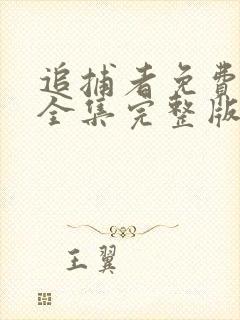 追捕者免費
全集完整版
王翼